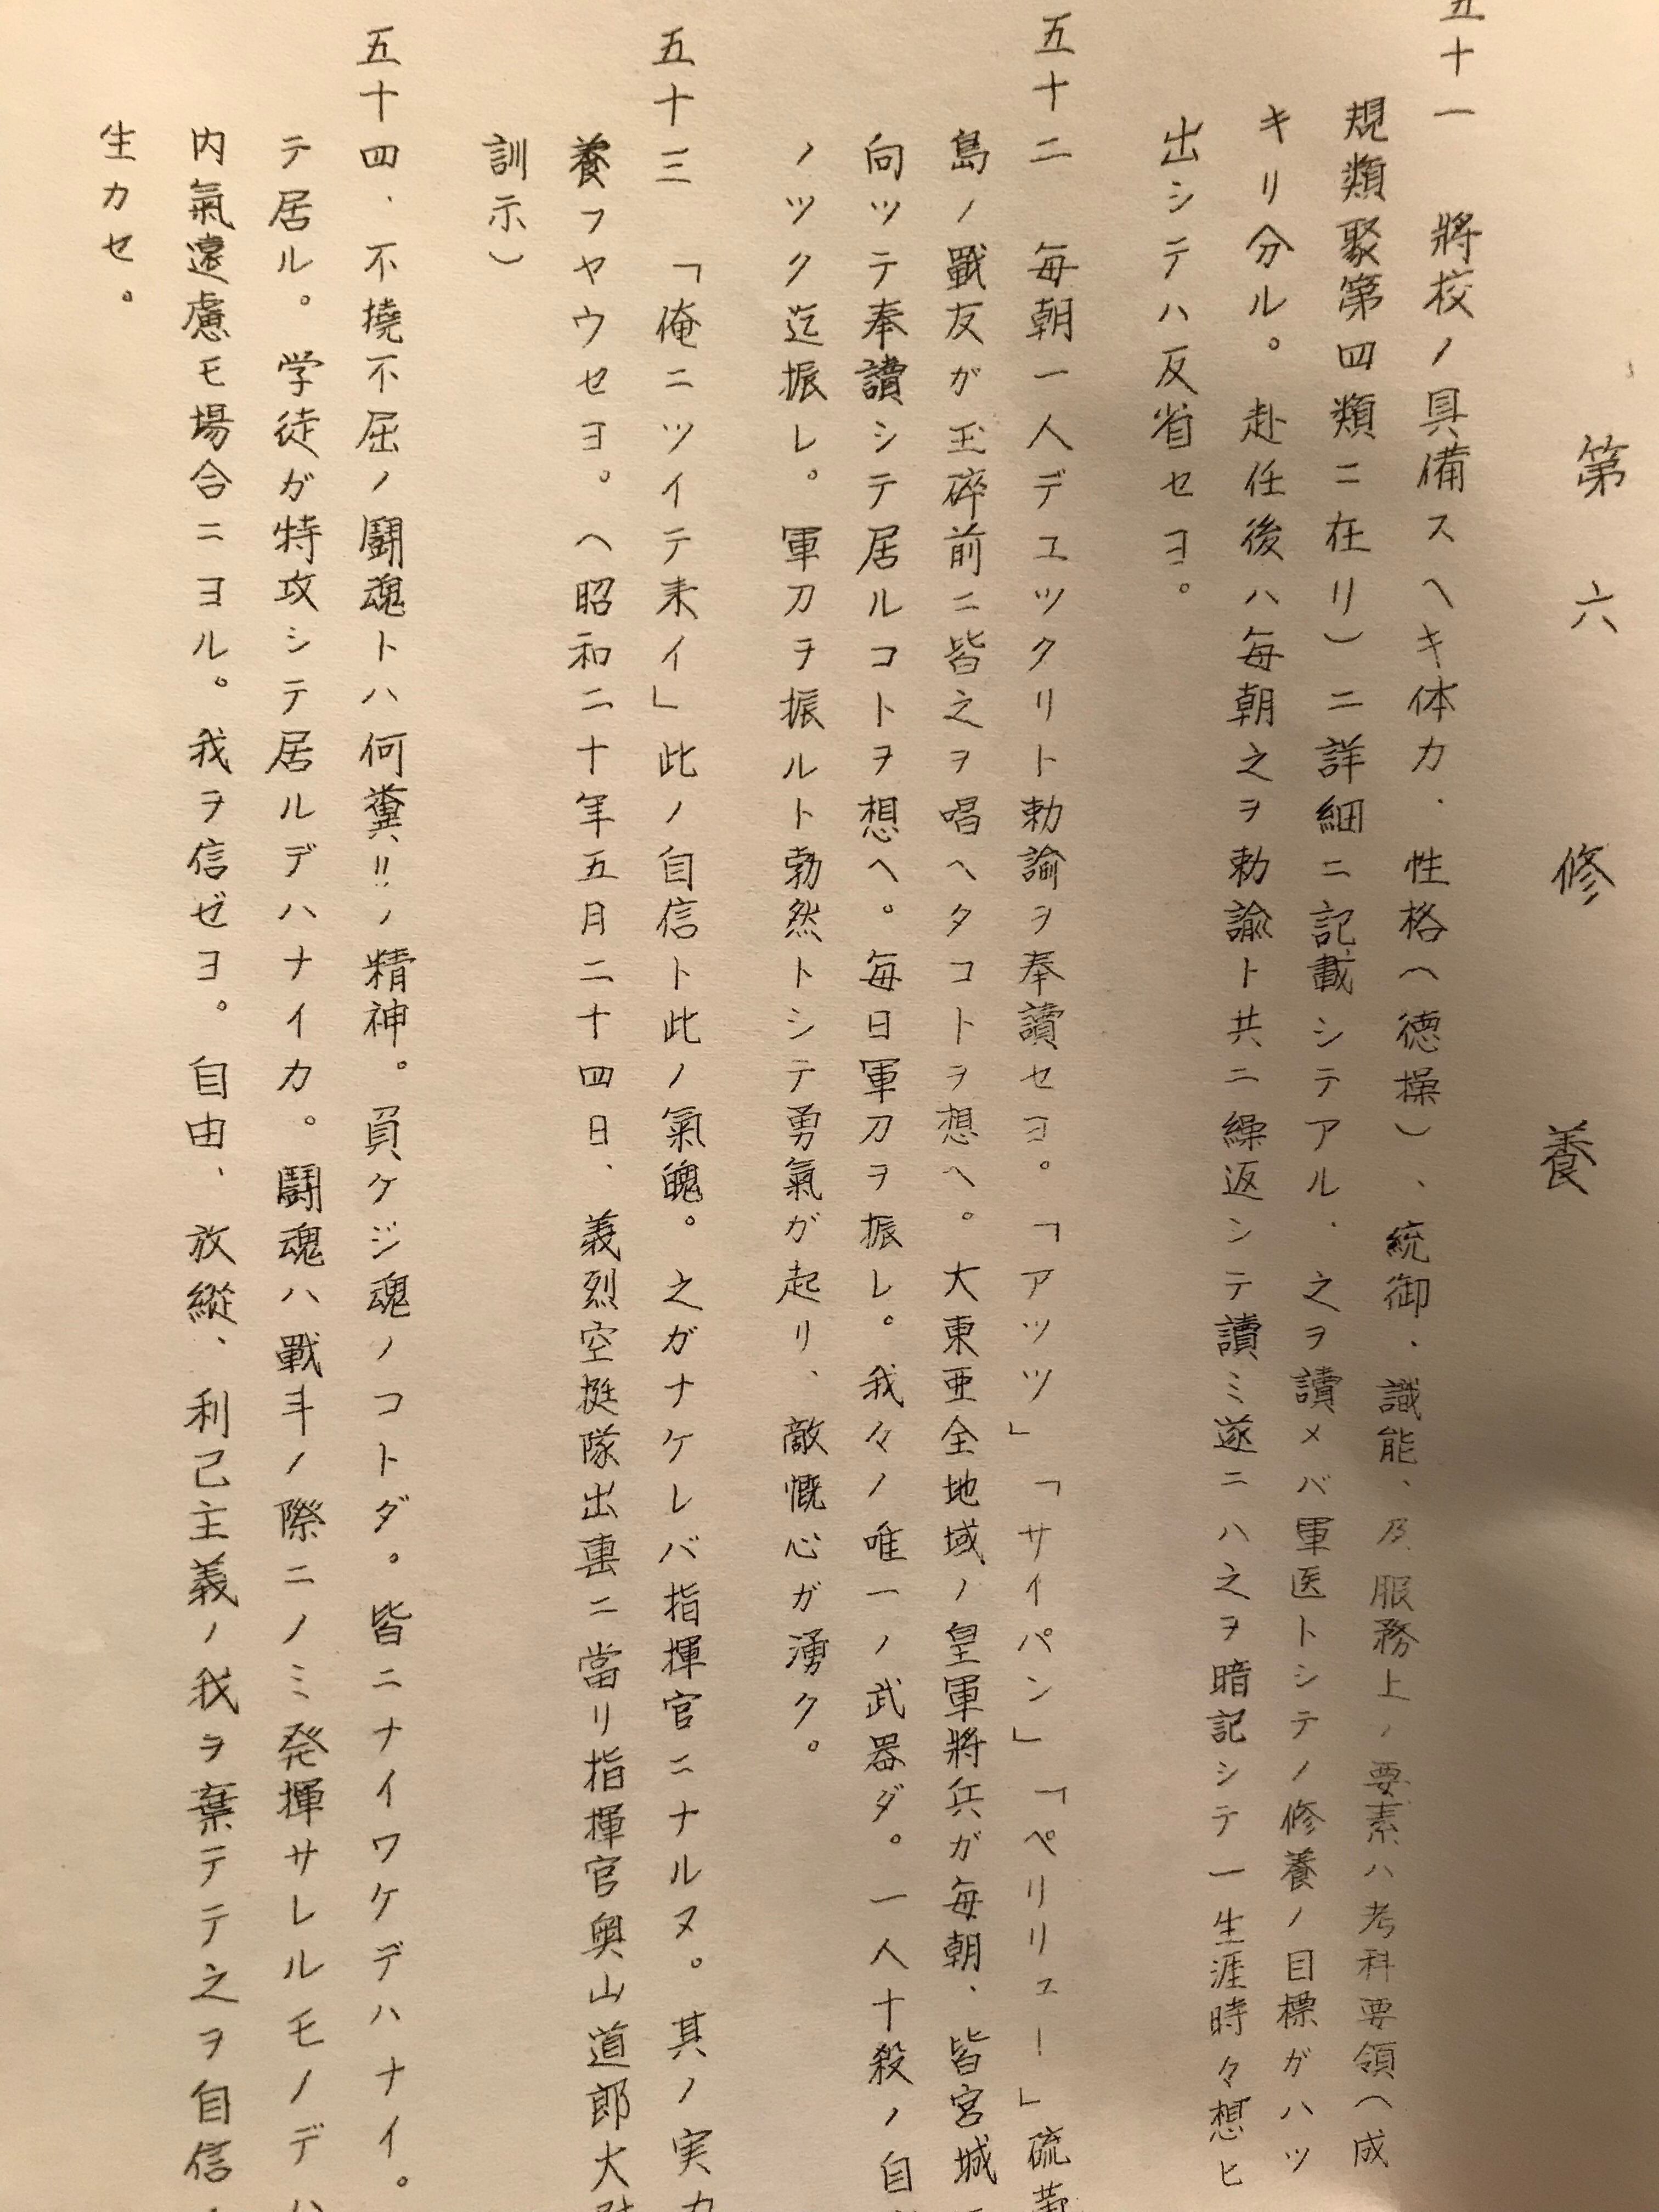 第六 修養
五十一 將校ノ具備スヘキ体力、性格(徳操)、統御、識能、及服務上ノ要素ハ考科要領(成
規類聚第四類ニ在リ)ニ詳細ニ記載シテアル、之ヲ讀メバ軍医トシテノ修養ノ目標ガハツ
キリ分ル。赴任後ハ毎朝之ヲ勅諭ト共ニ繰返シテ讀ミ遂ニハ之ヲ暗記シテ一生涯時々想ヒ
出シテハ反省セヨ。
五十二 毎朝一人デユツクリト勅諭ヲ奉讀セヨ。「アツツ」「サイパン」「ペリリュー」硫黄
島ノ戰友が玉碎前ニ皆之ヲ唱ヘタコトヲ想ヘ。大東亜全地域ノ皇軍將兵が毎朝、皆宮城
向ツテ奉讀シテ居ルコトヲ想ヘ。毎日軍刀ヲ振レ。我々ノ唯一ノ武器ダ。一人十殺ノ自
ノツク迄振レ。軍刀ヲ振ルト勃然トシテ勇氣が起リ、敵慨心が湧ク。
五十三 「俺ニツイテ来イ」此ノ自信ト此ノ氣魄。之ガナケレバ指揮官ニナルヌ。其ノ実力
養フヤウセヨ。(昭和二十年五月二十四日、義烈空挺隊出裏ニ當リ指揮官奥山道郎大
訓示)
五十四、不撓不屈ノ鬪魂トハ何糞!!ノ精神。負ケジ魂ノコトダ。皆ニナイワケデハナイ。
テ居ル。学徒が特攻シテ居ルデハナイカ。鬪魂ハ戰斗ノ際ニノミ発揮サレルモノデハ
内氣遠慮モ場合ニヨル。我ヲ信ゼヨ。自由、放縱、利己主義ノ我ヲ棄テテ之ヲ自信
生カセ。